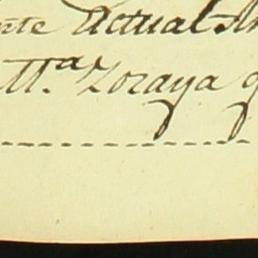 nte Actual
M.ª Zoraya